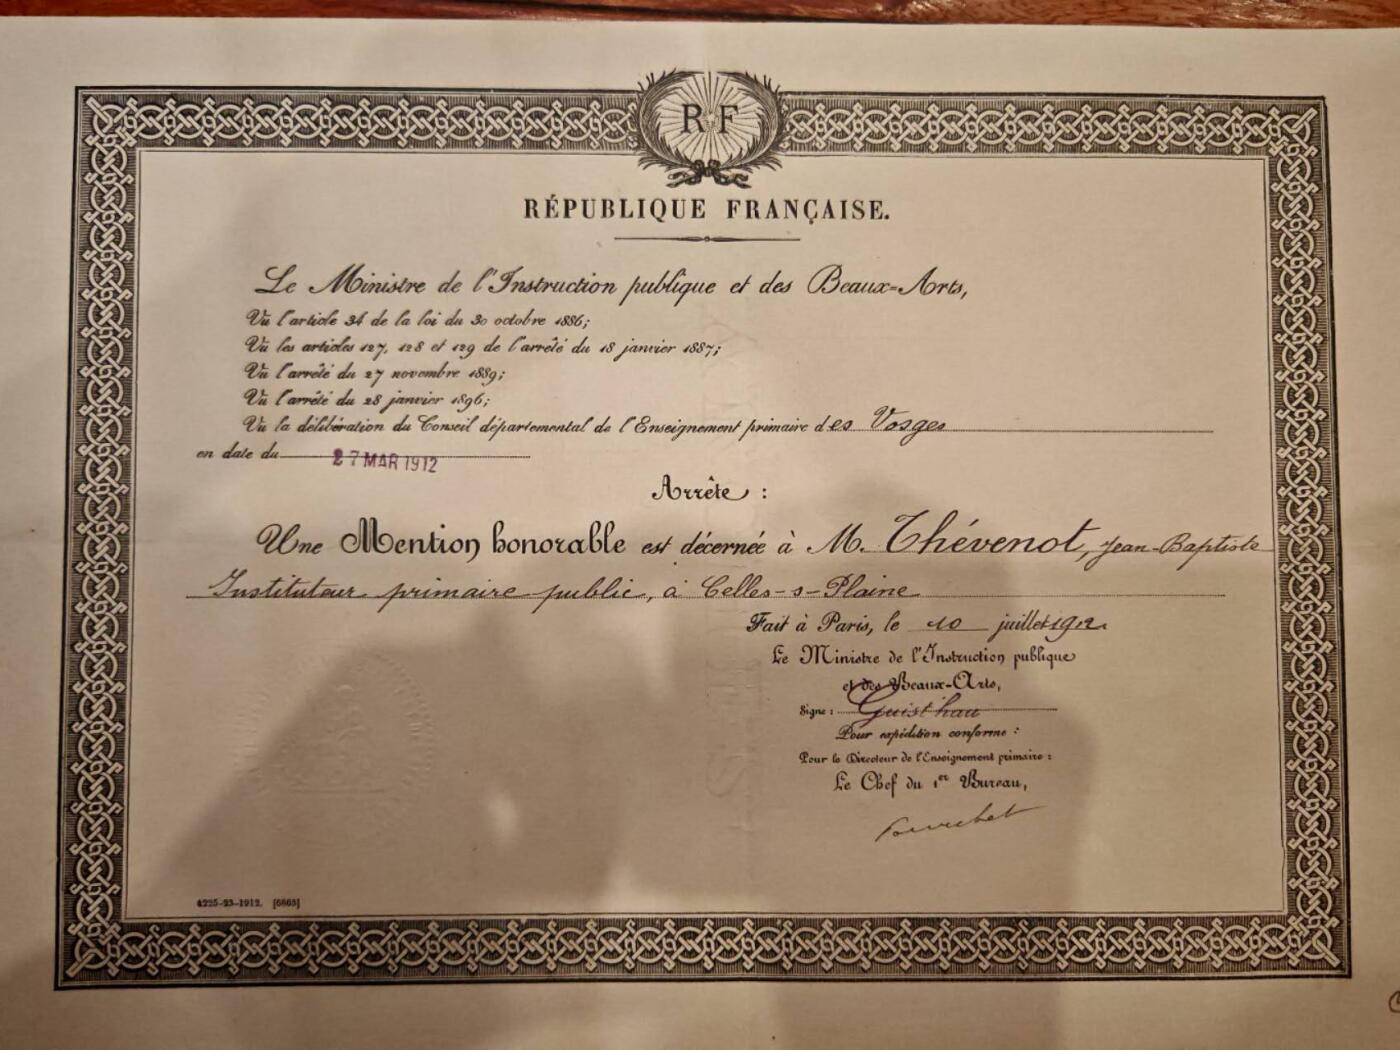 RF
RÉPUBLIQUE FRANÇAISE.
Le Ministre de l'Instruction publique et des Beaux-Arts,
Vu l'article 34 de la loi du 30 octobre 1886;
Vu les articles 127, 128 et 129 de l'arrêté du 18 janvier 1887;
Vu l'arrêté du 27 novembre 1889;
Vu l'arrêté du 28 janvier 1896;
Vu la délibération du Conseil départemental de l'Enseignement primaire des Vosges
en date du 27 MAR 1912
Arrête :
Une Mention honorable est décernée à M. Thévenot, Jean-Baptiste
Instituteur primaire public, à Celles-s-Plaine
Fait à Paris, le 10 juillet 1912.
Le Ministre de l'Instruction publique
et des Beaux-Arts,
Signé : Guist'hau
Pour expédition conforme :
Pour le Directeur de l'Enseignement primaire :
Le Chef du 1er Bureau,
4225-23-1912. [6863]